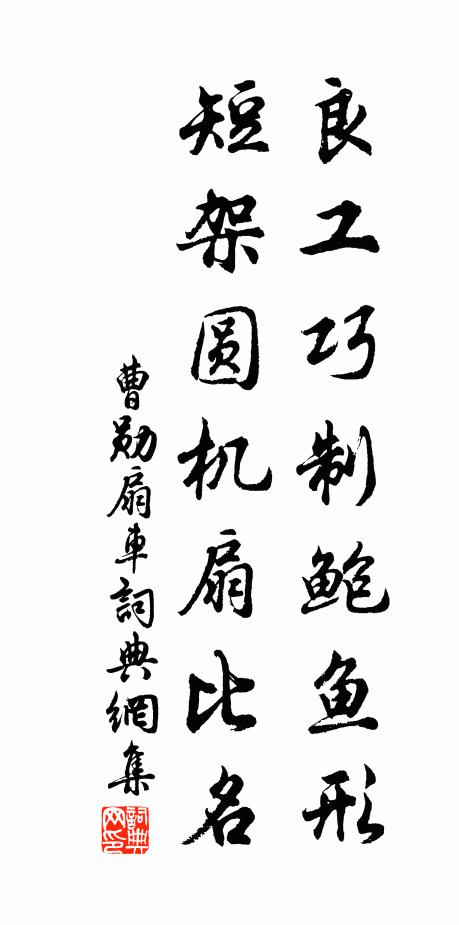 良工巧制鲍鱼形
短架圆机扇比名
曹勋扇車詞典網集
詞典网印